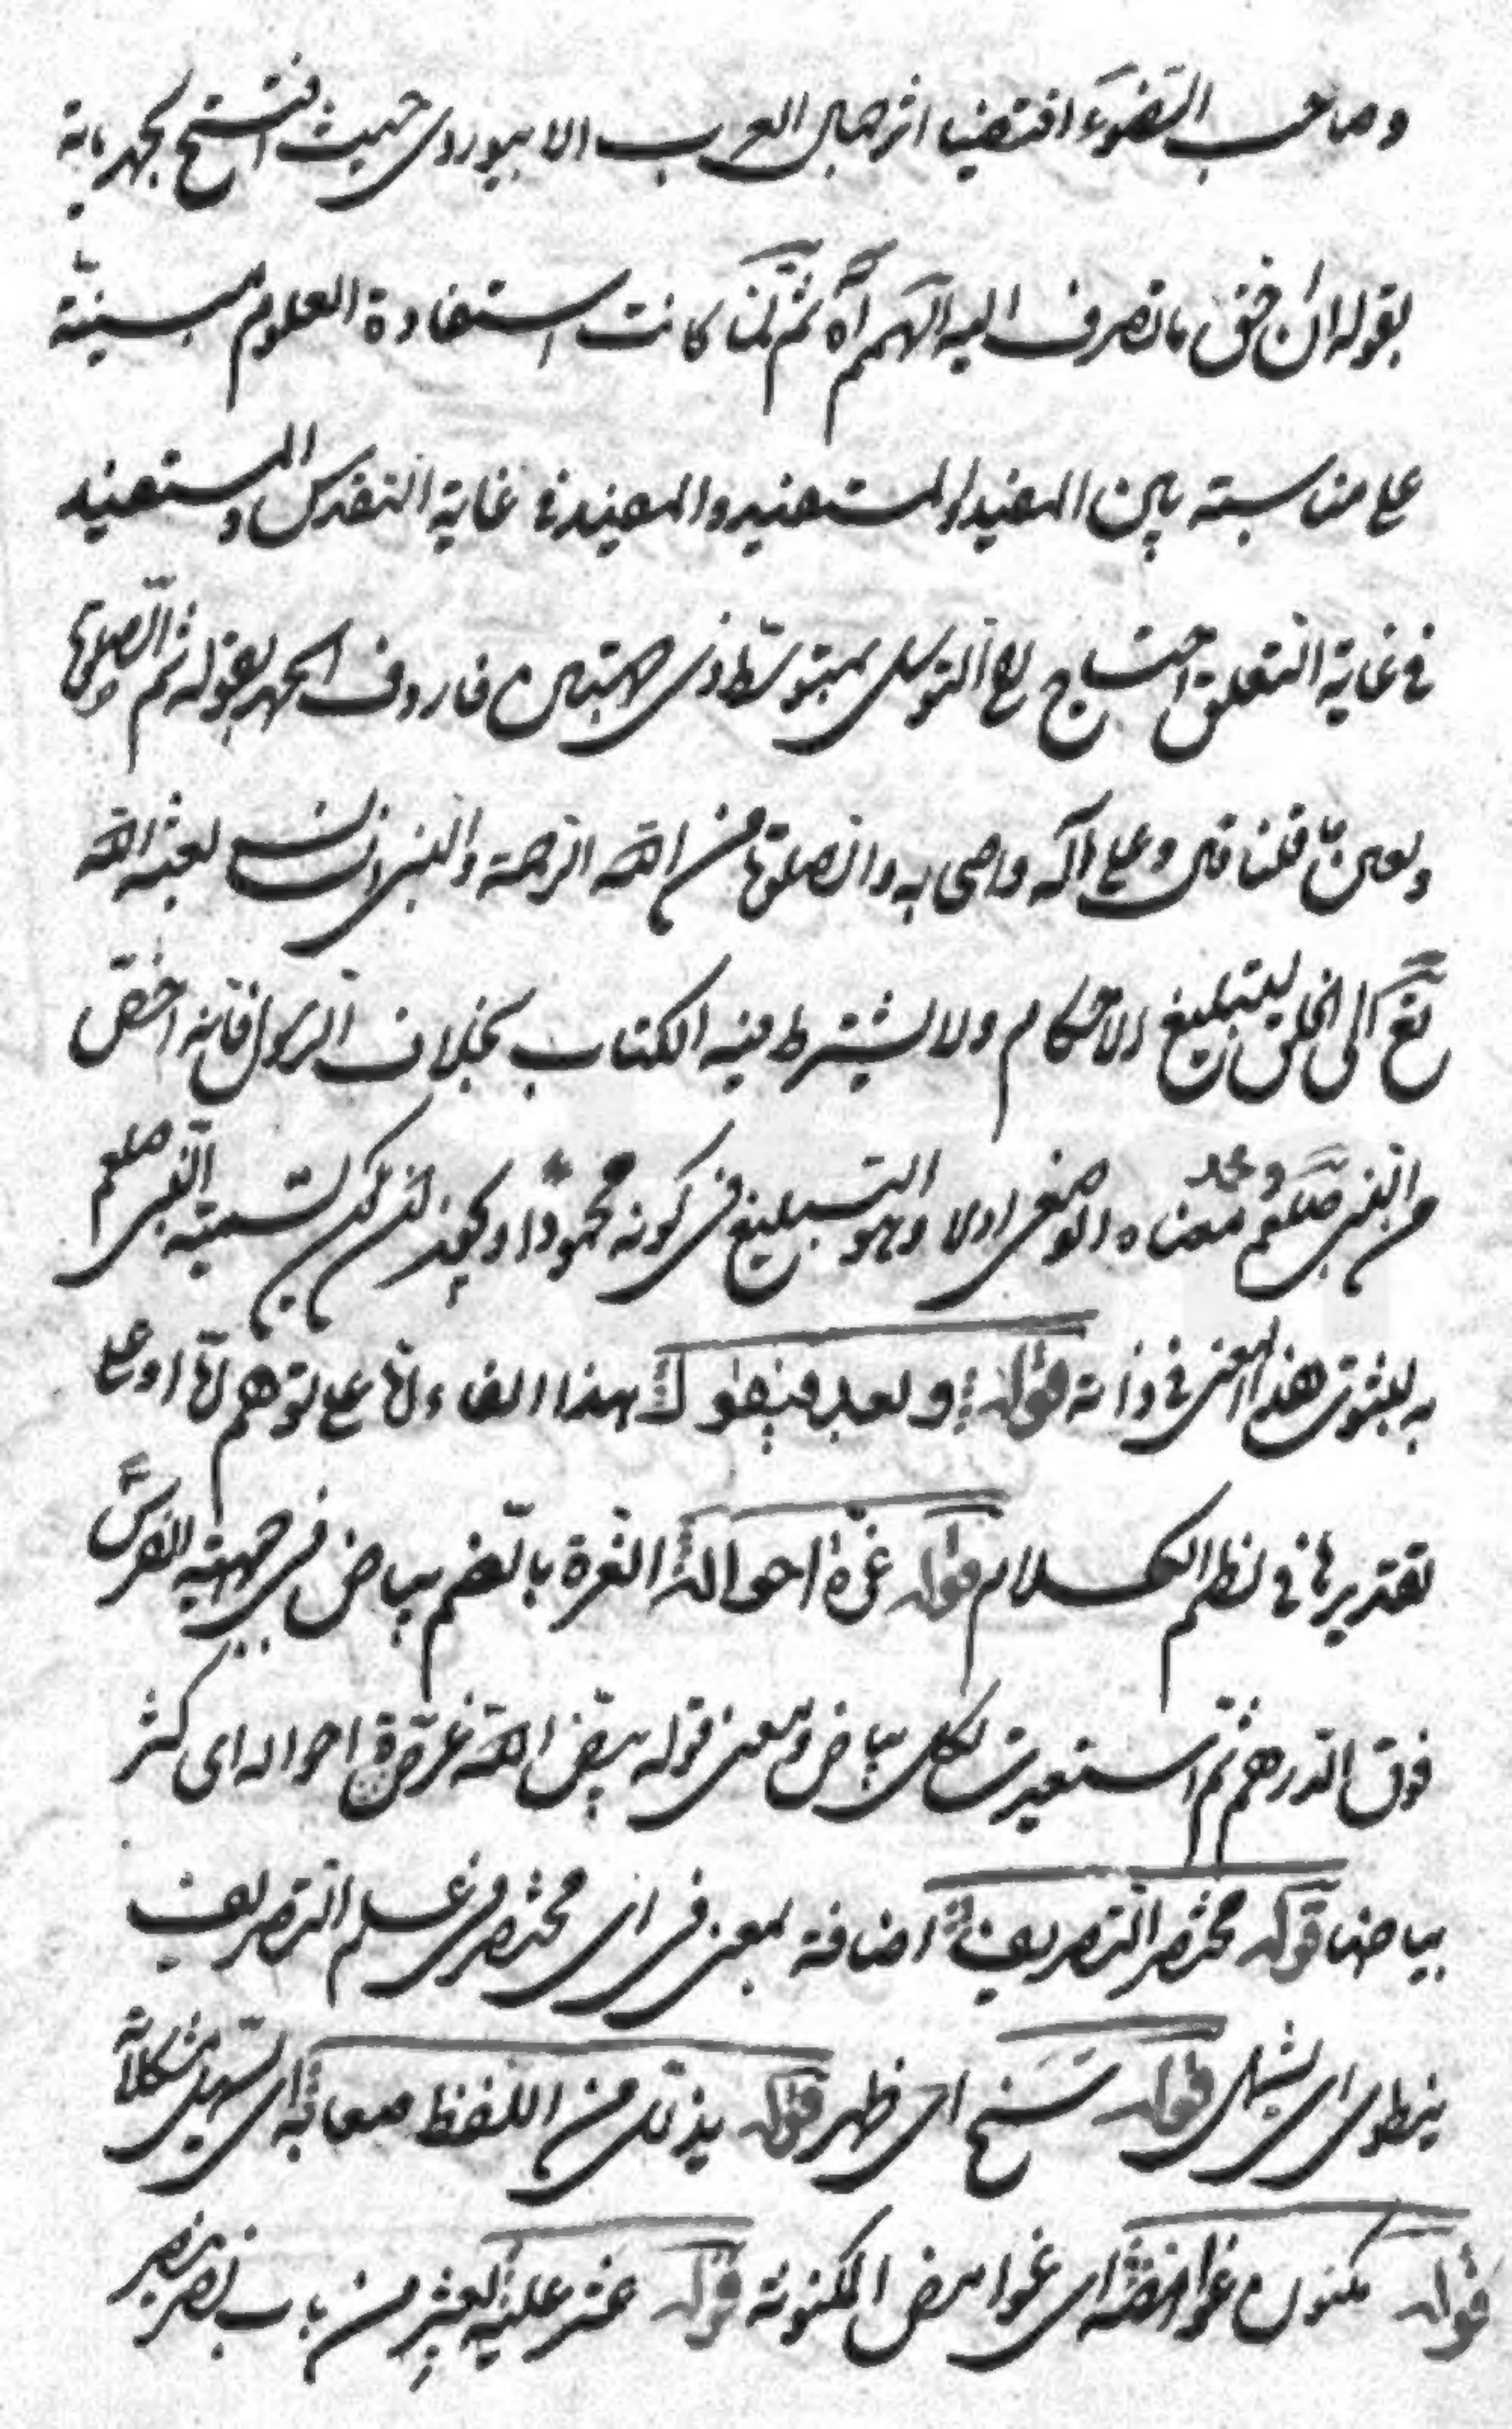 وصاحب الضوء اقتضيا اثر جمال العرب الابيوردى حيث افتتح كتابه
بقوله ان احق ما تصرف اليه الهمم آه ثم لما كانت استفادة العلوم مبنيّة
على مناسبة بين المفيد والمستفيد والمفيد فى غاية التقدس والمستفيد
فى غاية التعلق احتاج الى التوسل بمتوسّط ذى جهتين فاردف الحمد بقوله ثم الصلوة
وبعين ما قلنا قال وعلى آله واصحابه والصلوة من الله الرحمة والنبى انسان بعثه الله
تع الى الخلق لتبليغ الاحكام ولا يشترط فيه الكتاب بخلاف الرسول فانه اخص
من النبى صلعم ومحمد معناه الوصفى اولا وهو التبليغ فى كونه محمودا تسمية النبى صلعم
به لثبوت هذا المعنى فى ذاته قوله وبعد فيقول هذا الفاء اما على توهم اما او على
تقديرها فى نظم الكلام قوله غرة احواله الغرة بالضم بياض فى جبهة الفرس
فوق الدرهم ثم استعيرت لكل بياض ومعنى قوله بيّض الله غرة احواله اى كثر
بياضها قوله مختصر التصريف اضافة بمعنى فى اى مختصر فى علم التصريف
ينطوى اى يشمل قوله سنح اى ظهر قوله يذلل من اللفظ صعابه اى تسهيل مشكلاته
قوله مكنون غوامضه اى غوامض المكنونة قوله عثر عليه يعثر من باب نصر ينصر